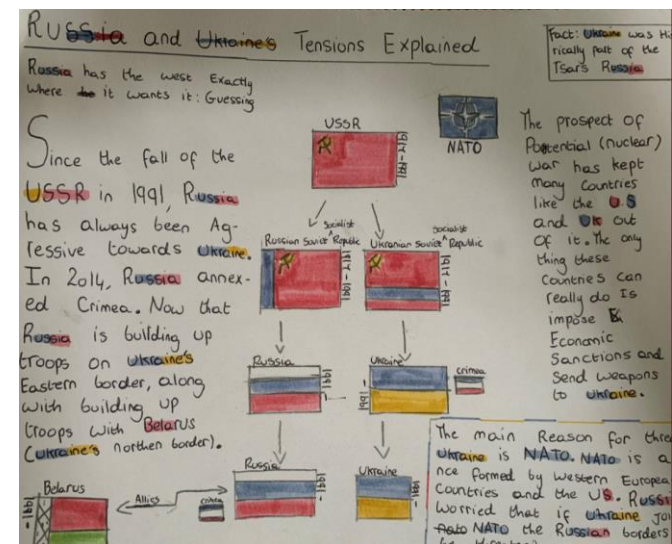 Russia and Ukraine's Tensions Explained
Russia has the west Exactly
where it wants it: Guessing
Since the fall of the
USSR in 1991, Russia
has always been Ag-
ressive towards Ukraine.
In 2014, Russia annex-
ed Crimea. Now that
Russia is building up
troops on Ukraine's
Eastern border, along
with building up
troops with Belarus
(Ukraine's northen border).
USSR
1917-1991
NATO
Socialist
Russian Soviet ^ Republic
1917-1991
Socialist
Ukranian Soviet ^ Republic
1917-1991
Russia
1991-
Ukraine
1991-
Crimea
Russia
1991-
Ukraine
1991-
Belarus
1991-
Allies
Crimea
Fact: Ukraine was Hi
rically part of the
Tsar's Russia
The prospect of
Potential (nuclear)
War has kept
Many Countries
like the U.S
and UK out
of it. The only
thing these
Countries can
really do Is
impose
Economic
Sanctions and
Send weapons
to Ukraine.
The main Reason for thre
Ukraine is NATO. NATO is a
nce formed by western Europea
Countries and the US. Russi
Worried that if Ukraine joi
NATO the Russian borders